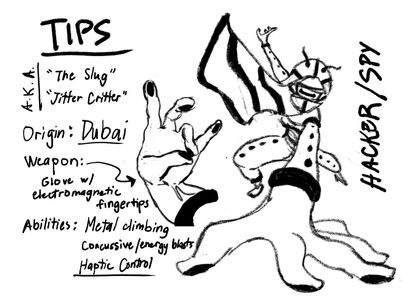 TIPS
A.K.A.
"The Slug"
"Jitter Critter"
Origin: Dubai
Weapon:
Glove w/
electromagnetic
fingertips
Abilities: Metal climbing
Concussive/energy blasts
Haptic Control
HACKER/SPY